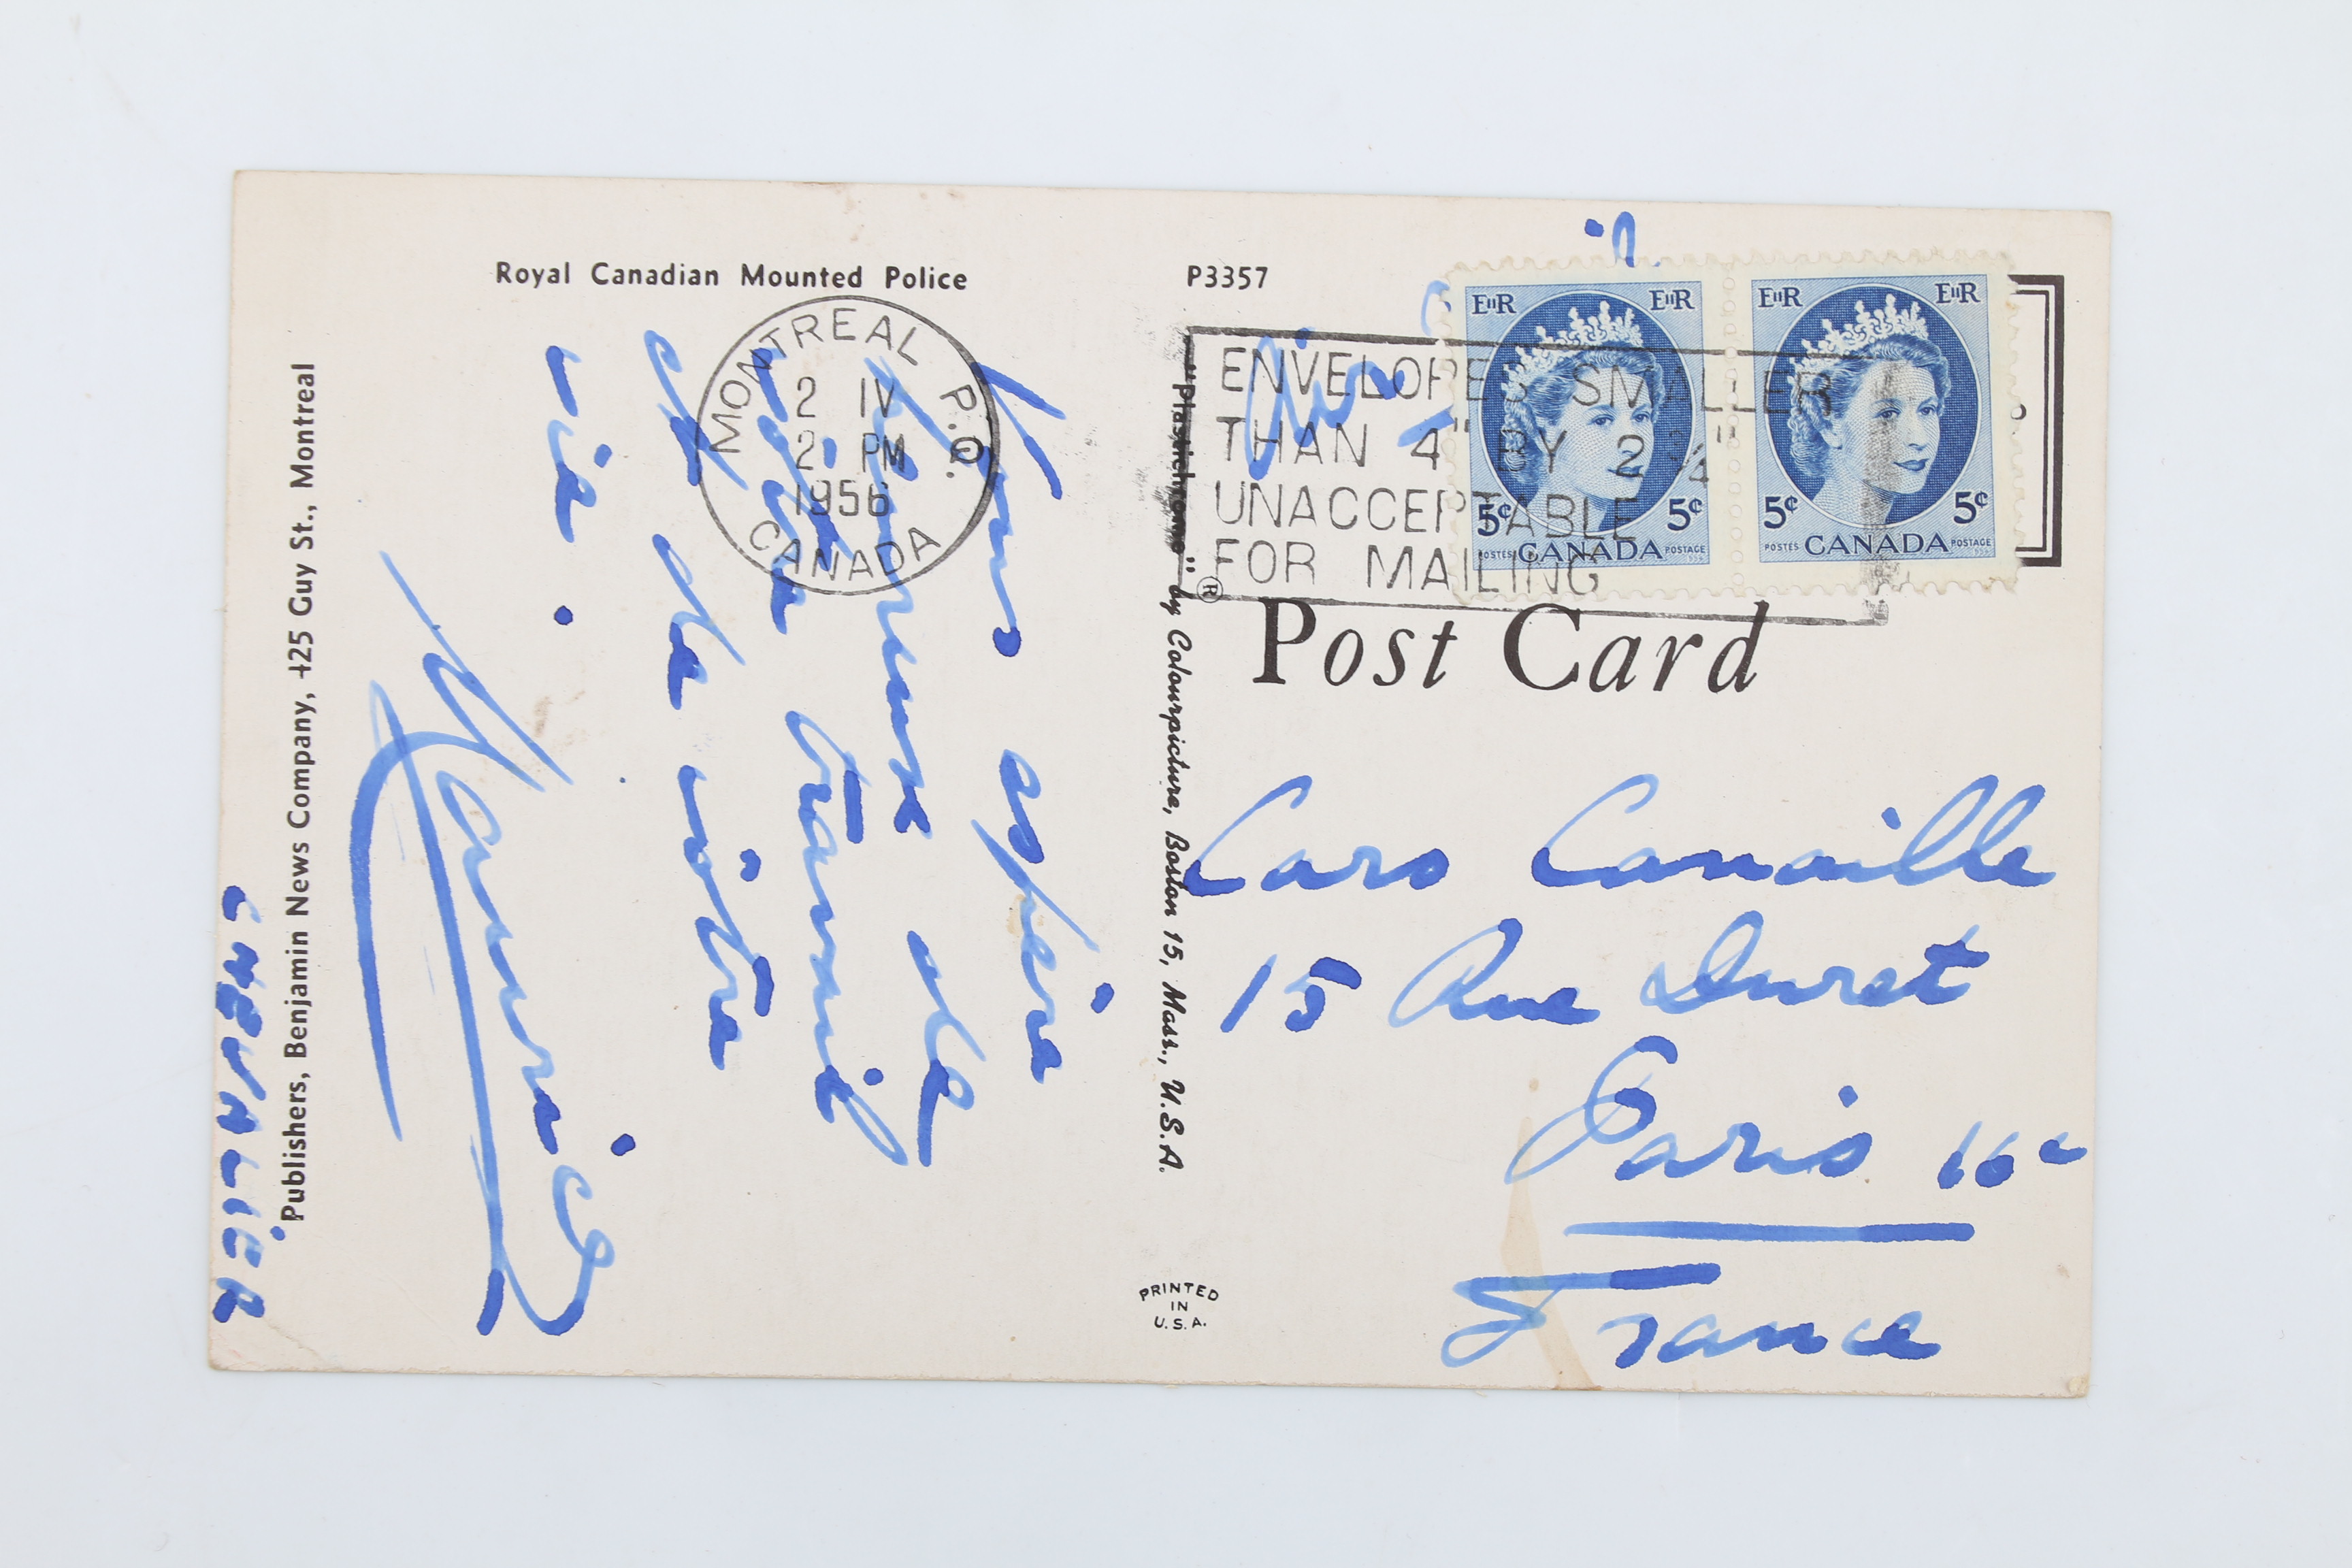 Royal Canadian Mounted Police
P3357
MONTREAL P.Q.
2 IV
2 PM
1956
CANADA
ENVELOPES SMALLER
THAN 4" BY 2 ¾"
UNACCEPTABLE
FOR MAILING
Air
EIIR EIIR
5¢ 5¢
POSTES CANADA POSTAGE
EIIR EIIR
5¢ 5¢
POSTES CANADA POSTAGE
Post Card
Vous espère
heureuse de
votre travail
et de votre
vie.
Maurice
CHEVALIER
Publishers, Benjamin News Company, 425 Guy St., Montreal
"Plastichrome" ® by Colourpicture, Boston 15, Mass., U.S.A.
Caro Canaille
15 Rue Duret
Paris 16e
France
PRINTED
IN
U.S.A.